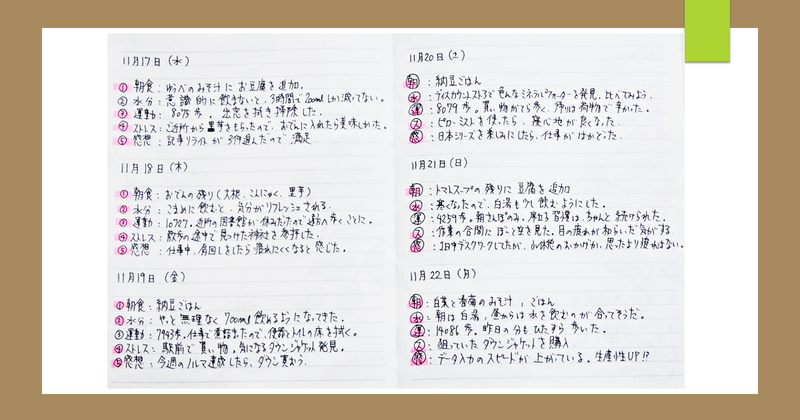 11月17日（水）
① 朝食：ゆうべのみそ汁にお豆腐を追加。
② 水分：意識的に飲まないと、3時間で200mlしか減ってない。
③ 運動：8075歩。出窓を拭き掃除した。
④ ストレス：ご近所から里芋をもらったので、おでんに入れたら美味しかった。
⑤ 感想：記事リライトが3つ進んだので満足
11月18日（木）
① 朝食：おでんの残り（大根、こんにゃく、里芋）
② 水分：こまめに飲むと、気分がリフレッシュされる。
③ 運動：10727。近所の図書館が休みだったので遠方へ歩くことに。
④ ストレス：散歩の途中で見つけた神社を参拝した。
⑤ 感想：仕事中、肩回しをしたら疲れにくくなると感じた。
11月19日（金）
① 朝食：納豆ごはん
② 水分：やっと無理なく700ml飲めるようになってきた。
③ 運動：7943歩。仕事で煮詰まったので、便器とトイレの床を拭く。
④ ストレス：駅前で買い物。気になるダウンジャケット発見。
⑤ 感想：今週のノルマ達成したら、ダウン買おう。
11月20日（土）
朝：納豆ごはん
水：ディスカウントストアで色んなミネラルウォーターを発見。比べてみよう。
運：8079歩。買い物がてら歩く。帰りは荷物で辛かった。
ス：ピローミストを使ったら、寝心地が良くなった。
感：日本シリーズを楽しみにしたら、仕事がはかどった。
11月21日（日）
朝：トマトスープの残りに豆腐を追加
水：寒くなったので、白湯も少し飲むようにした。
運：9259歩。朝さんぽのみ。座る習慣は、ちゃんと続けられた。
ス：作業の合間にぼーと空を見た。目の疲れが和らいだ気がする。
感：1日中デスクワークしてたが、小休憩のおかげか、思ったより疲れはない。
11月22日（月）
朝：白菜と春菊のみそ汁、ごはん
水：朝は白湯、昼からは水を飲むのが合ってそうだ。
運：14086歩。昨日の分もひたすら歩いた。
ス：狙っていたダウンジャケットを購入
感：データ入力のスピードが上がっている。生産性UP!?